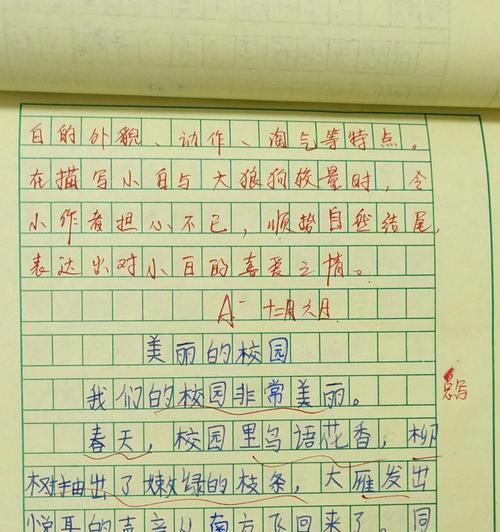 白的外貌、动作、淘气等特点。
在描写小白与大狼狗较量时,令
小作者担心不已,顺势自然结尾,
表达出对小白的喜爱之情。
A⁻ 十二月六日
美丽的校园
我们的校园非常美丽。
总写
春天,校园里鸟语花香,柳
树抽出了嫩绿的枝条,大雁发出
悦耳的声音从南方飞回来了。同